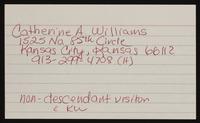 Catherine A. Williams
1525 No. 85th Circle
Kansas City, Kansas 66112
913-299-4708 (H)
non-descendant visitor
c KW